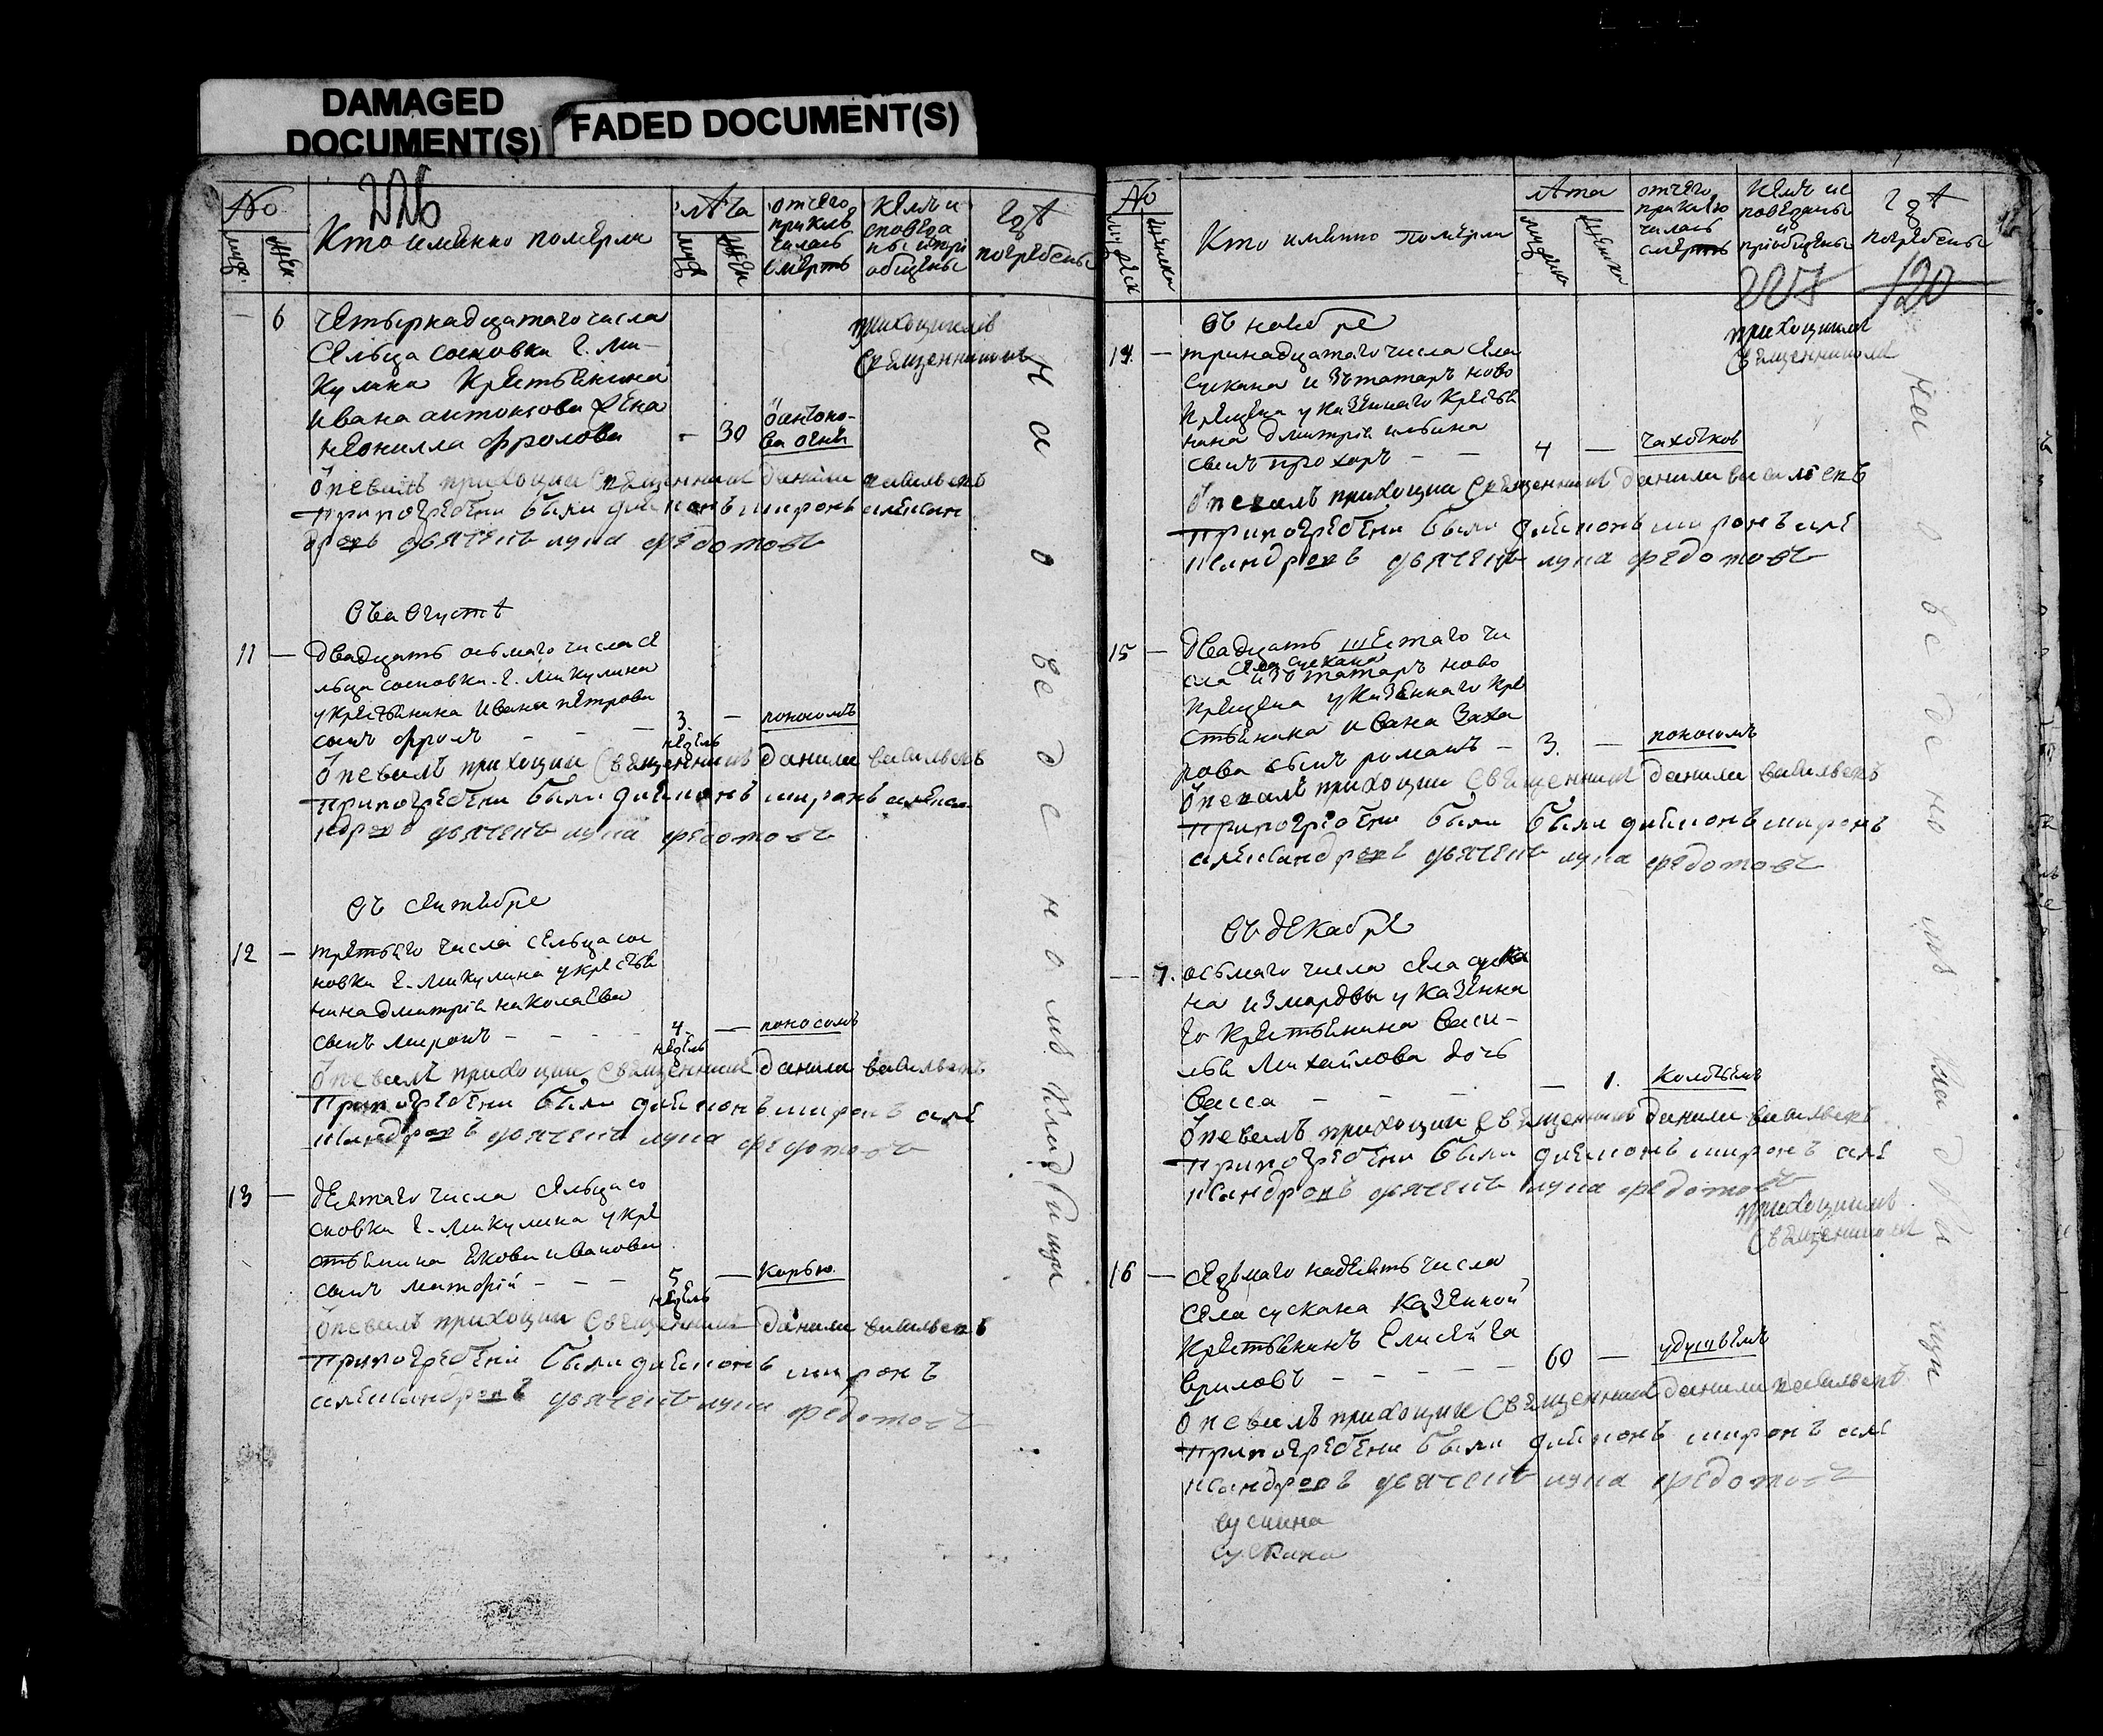 DAMAGED
DOCUMENT(S)
FADED DOCUMENT(S)
226
№
муж.
жен.
Кто имЕнно помЕрли
лѣта
муж
жен
отчего
приклю
чилась
смерть
кемъ и
споведа
ны и прі
общены
гдѣ
погребены
— 6 чЕтырнадцатаго числа
сЕльца сосновки г. Ми-
кулина крЕстьянина
ивана антонова жЕна
нЕонилла фролова - 30 ѿ антоно-
ва огня
приходцкимъ
свЯщенникомъ
ѿпевалъ приходцки свЯщенникъ данила васильевъ
при погрЕбЕни были диЯконъ миронъ алЕксан
дровъ дьячекъ лука федотовъ
въ августѣ
11 — двадцать осьмаго числа сЕ
льца сосновки. г. микулина
у крЕстьянина ивана пЕтрова
сынъ фролъ — — — 3 — поносомъ
нЕдЕль
ѿпевалъ приходцки свЯщЕнникъ данила васильевъ
при погрЕбЕни были диЯконъ миронъ алЕкса
ндровъ дьячекъ лука федотовъ
въ сЕнтЯбре
12 — трЕтьяго числа сЕльца сос
новки г. микулина у крЕстьЯ
нина дмитрія николаЕва
сынъ миронъ — — — - 4. — поносомъ
нЕдЕль
ѿпевалъ приходцки свЯщЕнникъ данила васильевъ
при погрЕбЕни были диЯконъ миронъ алЕ
ксандровъ дьячекъ лука федотовъ
13 — дЕвЯтаго числа сЕльца со
сновки г. микулина у крЕ
стьЯнина Якова иванова
сынъ — — — 5 — корью
нЕдЕль
ѿпевалъ приходцки свЯщЕнникъ данила васильевъ
при погрЕбЕни были диЯконъ миронъ
алЕксандровъ дьячекъ лука федотовъ
на о вс дс н о мъ кладбищи
№
мужеск
женска
Кто имЕнно помЕрли
лѣта
отчего
приклю
чилась
смерть
кЕмъ ис
повЕданы
и
пріобщЕны
гдѣ
погрЕбЕны
227
120
въ ноЯбре
14. — тринадцатаго числа сЕла
сускана изъ татаръ ново
крЕщена у казЕннаго крЕстьЯ
нина дмитрія ильина
сынъ прохоръ — — 4 — чахоткою
приходцкимъ
свЯщЕнникомъ
ѿпевалъ приходцки свЯщЕнникъ данила васильевъ
при погрЕбЕни были диЯконъ миронъ алЕ
ксандровъ дьячекъ лука федотовъ
15 — двадцать шЕстаго чи
сЕла сускана
сла изъ татаръ ново
крЕщена у казЕннаго крЕ
стьЯнина ивана заха
рова сынъ романъ — 3. — поносомъ
ѿпевалъ приходцки свЯщЕнникъ данила васильевъ
при погрЕбЕни были были диЯконъ миронъ
алЕксандровъ дьячекъ лука федотовъ
въ дЕкабрЕ
— 7. осьмаго числа сЕла суска
на из мордвы у казЕнна
го крЕстьЯнина васи-
лья Михайлова дочь
васса — — — — 1. колотьЕмъ
ѿпевалъ приходцки свЯщЕнникъ данила васильевъ
при погрЕбЕни были диЯконъ миронъ алЕ
ксандровъ дьячекъ лука федотовъ
приходцкимъ
свЯщЕнникомъ
16 — сЕдьмаго надЕсЯть числа
сЕла сускана казЕнной
крЕстьЯнинъ ЕлисЕй га
вриловъ — — — — 60 — удушьЕмъ
ѿпевалъ приходцки свЯщЕнникъ данила васильевъ
при погрЕбЕни были диЯконъ миронъ алЕ
ксандровъ дьячекъ лука федотовъ
сускана
сускана